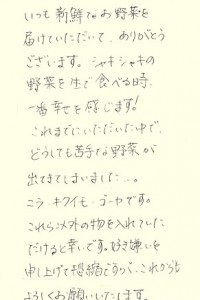 いつも新鮮なお野菜を
届けていただいて、ありがとう
ございます。シャキシャキの
野菜を生で食べる時、
一番幸せを感じます!
これまでにいただいた中で、
どうしても苦手な野菜が
出てきてしまいました…。
ニラ・キクイモ・ゴーヤです。
これら以外の物を入れていた
だけると幸いです。好き嫌いを
申し上げて恐縮ですが、これからも
よろしくお願いいたします。